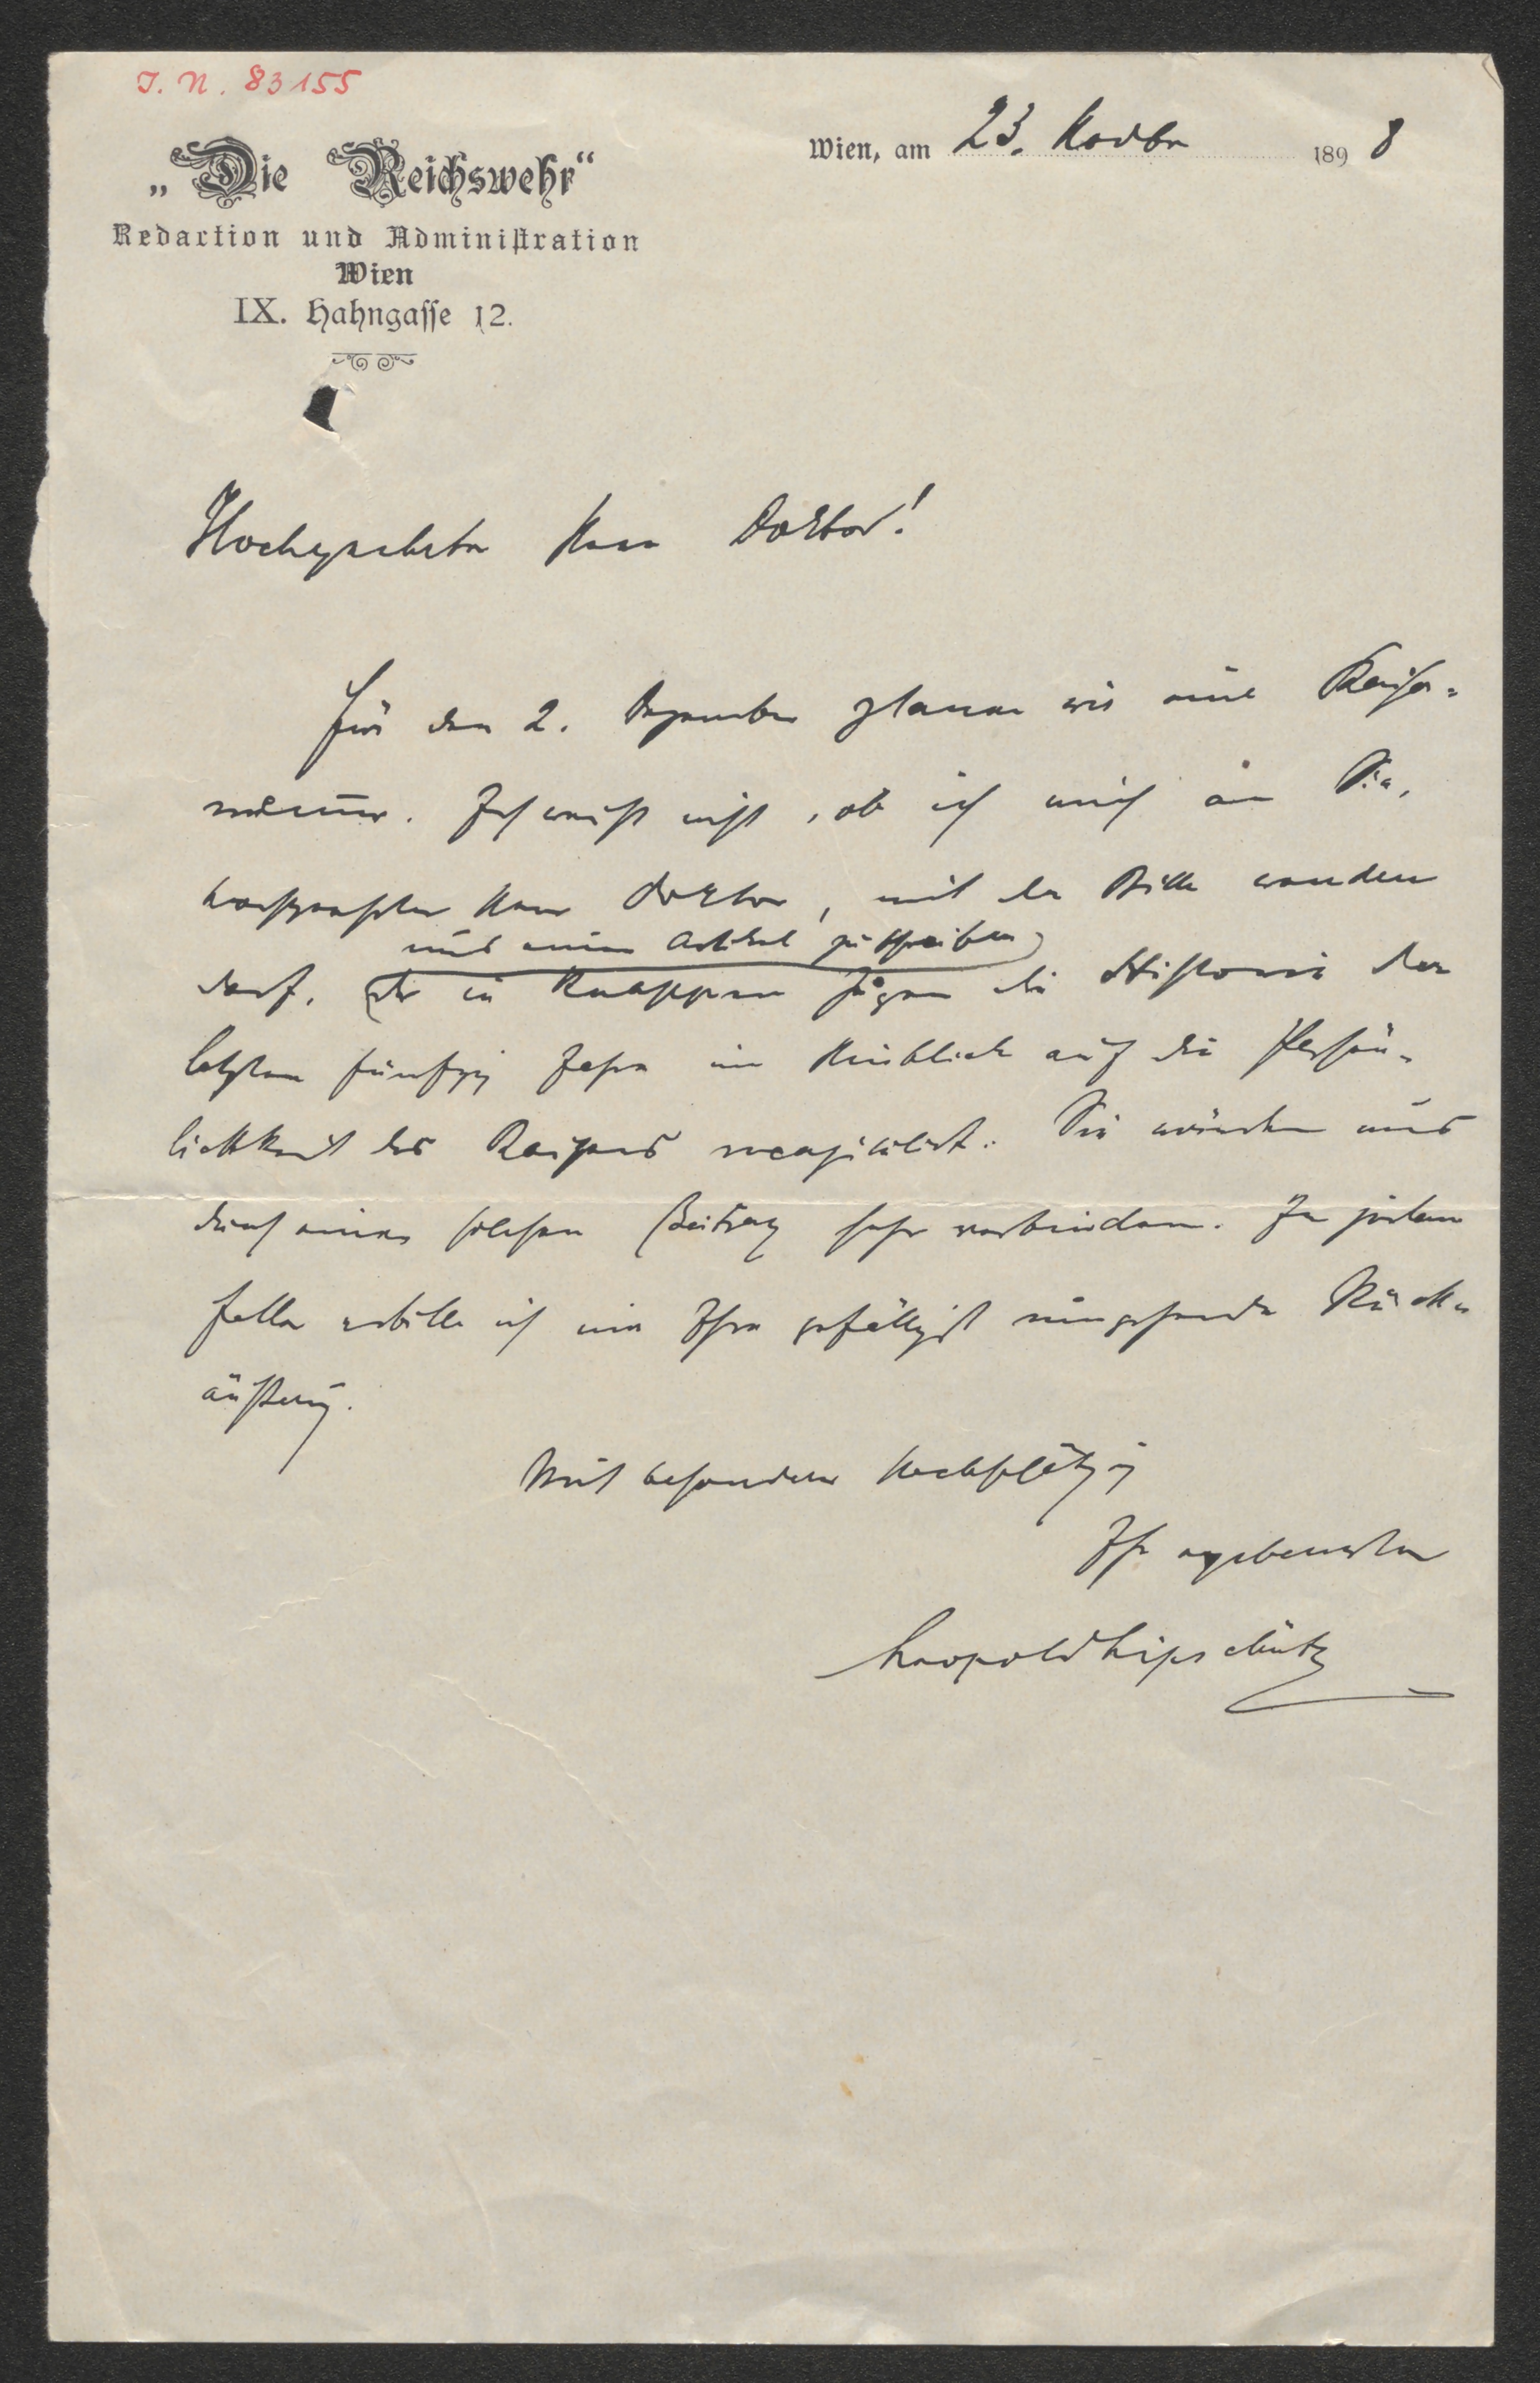 I. N. 83155
Wien, am 23. Novbr 1898
„Die Reichswehr“
Redaction und Administration
Wien
IX. Hahngasse 12.
Hochgeehrter Herr Doktor!
Für den 2. Dezember planen wir eine Kaiser-
nummer. Ich weiß nicht, ob ich mich an Sie,
hochgeehrter Herr Doktor, mit der Bitte wenden
uns einen Artikel zu schreiben
darf, der in knappen Zügen die Historie der
letzten fünfzig Jahre im Hinblick auf die Persön-
lichkeit des Kaisers recapitulirt. Sie würden uns
durch einen solchen Beitrag sehr verbinden. In jedem
Falle erbitte ich mir Ihre gefälligst umgehende Rück-
äußerung.
Mit besonderer Hochschätzung
Ihr ergebenster
Leopold Lipschütz